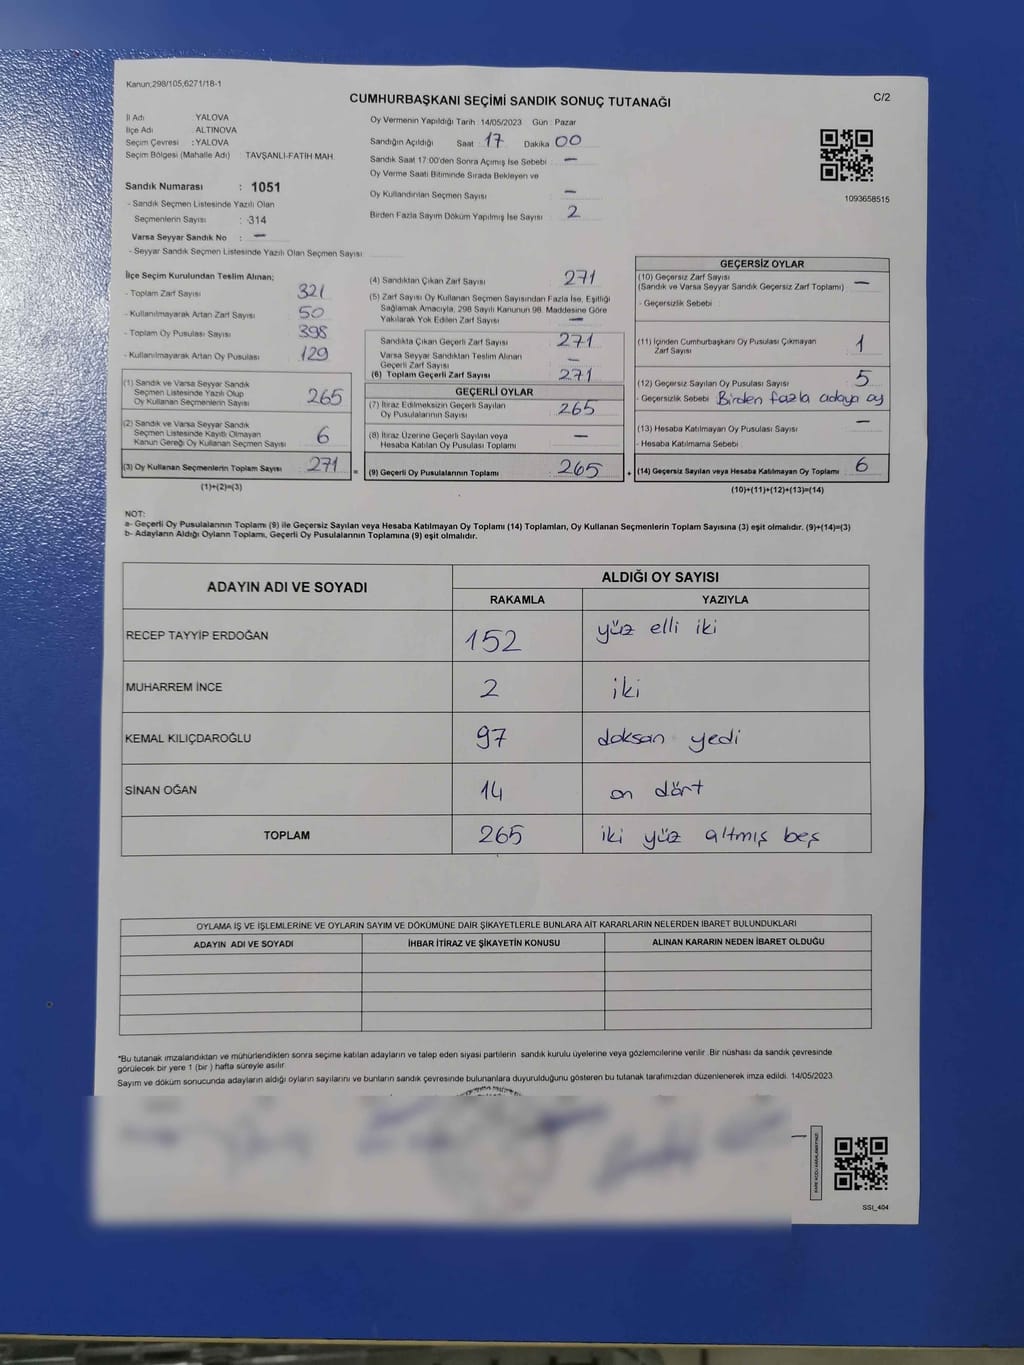 Kanun;298/105,6271/18-1
C/2
CUMHURBAŞKANI SEÇİMİ SANDIK SONUÇ TUTANAĞI
İl Adı YALOVA
İlçe Adı ALTINOVA
Seçim Çevresi : YALOVA
Seçim Bölgesi (Mahalle Adı) : TAVŞANLI-FATİH MAH.
Sandık Numarası : 1051
- Sandık Seçmen Listesinde Yazılı Olan
Seçmenlerin Sayısı : 314
Varsa Seyyar Sandık No : —
- Seyyar Sandık Seçmen Listesinde Yazılı Olan Seçmen Sayısı
Oy Vermenin Yapıldığı Tarih : 14/05/2023 Gün : Pazar
Sandığın Açıldığı Saat : 17 Dakika 00
Sandık Saat 17:00'den Sonra Açımış İse Sebebi : —
Oy Verme Saati Bitiminde Sırada Bekleyen ve
Oy Kullandırılan Seçmen Sayısı : —
Birden Fazla Sayım Döküm Yapılmış İse Sayısı : 2
1093658515
İlçe Seçim Kurulundan Teslim Alınan;
- Toplam Zarf Sayısı : 321
- Kullanılmayarak Artan Zarf Sayısı : 50
- Toplam Oy Pusulası Sayısı : 398
- Kullanılmayarak Artan Oy Pusulası : 129
(1) Sandık ve Varsa Seyyar Sandık
Seçmen Listesinde Yazılı Olup
Oy Kullanan Seçmenlerin Sayısı : 265
(2) Sandık ve Varsa Seyyar Sandık
Seçmen Listesinde Kayıtlı Olmayan
Kanun Gereği Oy Kullanan Seçmen Sayısı : 6
(3) Oy Kullanan Seçmenlerin Toplam Sayısı : 271 =
(1)+(2)=(3)
(4) Sandıktan Çıkan Zarf Sayısı : 271
(5) Zarf Sayısı Oy Kullanan Seçmen Sayısından Fazla İse, Eşitliği
Sağlamak Amacıyla, 298 Sayılı Kanunun 98. Maddesine Göre
Yakılarak Yok Edilen Zarf Sayısı : —
Sandıkta Çıkan Geçerli Zarf Sayısı : 271
Varsa Seyyar Sandıktan Teslim Alınan
Geçerli Zarf Sayısı : —
(6) Toplam Geçerli Zarf Sayısı : 271
GEÇERLİ OYLAR
(7) İtiraz Edilmeksizin Geçerli Sayılan
Oy Pusulalarının Sayısı : 265
(8) İtiraz Üzerine Geçerli Sayılan veya
Hesaba Katılan Oy Pusulası Toplamı : —
(9) Geçerli Oy Pusulalarının Toplamı : 265 +
GEÇERSİZ OYLAR
(10) Geçersiz Zarf Sayısı
(Sandık ve Varsa Seyyar Sandık Geçersiz Zarf Toplamı) : —
- Geçersizlik Sebebi :
(11) İçinden Cumhurbaşkanı Oy Pusulası Çıkmayan
Zarf Sayısı : 1
(12) Geçersiz Sayılan Oy Pusulası Sayısı : 5
- Geçersizlik Sebebi : Birden fazla adaya oy
(13) Hesaba Katılmayan Oy Pusulası Sayısı : —
- Hesaba Katılmama Sebebi :
(14) Geçersiz Sayılan veya Hesaba Katılmayan Oy Toplamı : 6
(10)+(11)+(12)+(13)=(14)
NOT:
a- Geçerli Oy Pusulalarının Toplamı (9) ile Geçersiz Sayılan veya Hesaba Katılmayan Oy Toplamı (14) Toplamları, Oy Kullanan Seçmenlerin Toplam Sayısına (3) eşit olmalıdır. (9)+(14)=(3)
b- Adayların Aldığı Oyların Toplamı, Geçerli Oy Pusulalarının Toplamına (9) eşit olmalıdır.
ADAYIN ADI VE SOYADI
ALDIĞI OY SAYISI
RAKAMLA YAZIYLA
RECEP TAYYİP ERDOĞAN 152 yüz elli iki
MUHARREM İNCE 2 iki
KEMAL KILIÇDAROĞLU 97 doksan yedi
SİNAN OĞAN 14 on dört
TOPLAM 265 iki yüz altmış beş
OYLAMA İŞ VE İŞLEMLERİNE VE OYLARIN SAYIM VE DÖKÜMÜNE DAİR ŞİKAYETLERLE BUNLARA AİT KARARLARIN NELERDEN İBARET BULUNDUKLARI
ADAYIN ADI VE SOYADI İHBAR İTİRAZ VE ŞİKAYETİN KONUSU ALINAN KARARIN NEDEN İBARET OLDUĞU
*Bu tutanak imzalandıktan ve mühürlendikten sonra seçime katılan adayların ve talep eden siyasi partilerin sandık kurulu üyelerine veya gözlemcilerine verilir. Bir nüshası da sandık çevresinde
görülecek bir yere 1 (bir) hafta süreyle asılır.
Sayım ve döküm sonucunda adayların aldığı oyların sayılarını ve bunların sandık çevresinde bulunanlara duyurulduğunu gösteren bu tutanak tarafımızdan düzenlenerek imza edildi. 14/05/2023
SSI_404